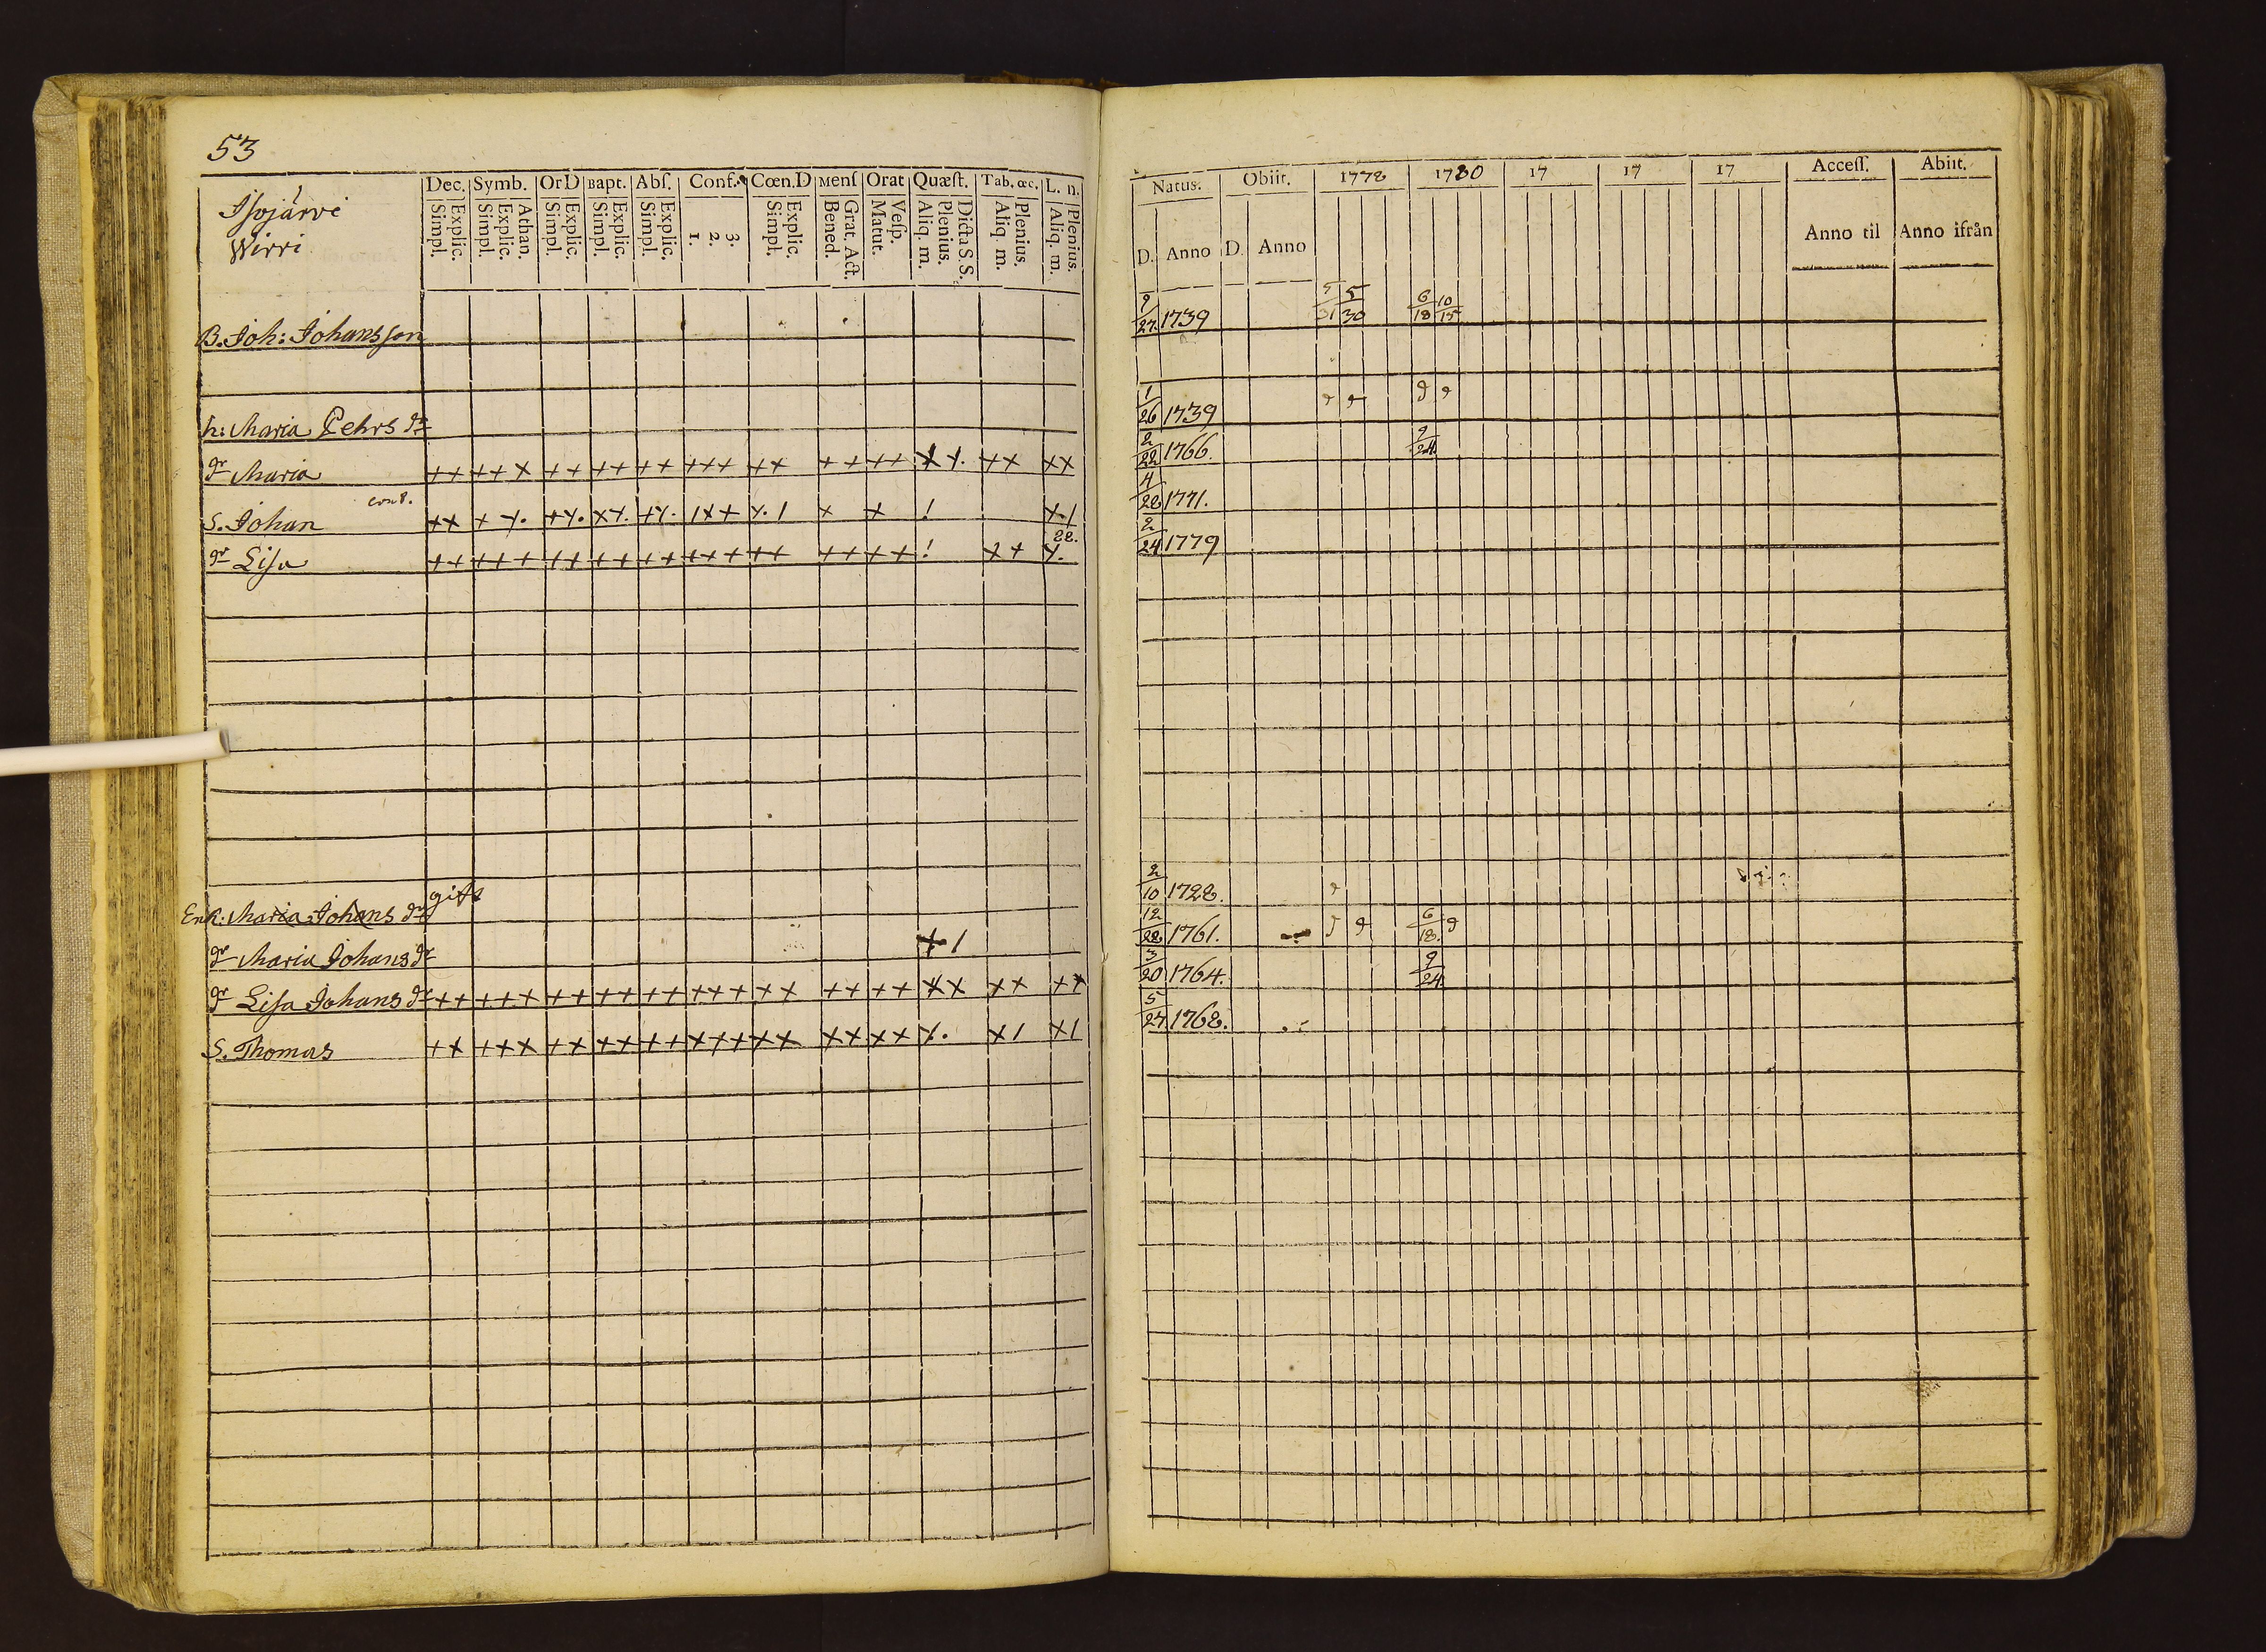 53
Isojärvi
Wirri
Dec. Symb. Or D Bapt. Abſ. Conf. Cœn. D Menſ Orat Quæſt. Tab. œc. L. n.
Simpl. Explic. Simpl. Explic. Athan. Simpl. Explic. Simpl. Explic. Simpl. Explic. 1. 2. 3. Simpl. Explic. Bened. Grat. Act. Matut. Veſp. Aliq. m. Plenius. Dicta S. S. Aliq. m. Plenius. Aliq. m. Plenius.
B. Joh: Johansson
h: Maria Pehrs dr
dr Maria ++ +++ ++ ++ ++ +++ ++ ++ ++ ++ ××
conf.
S. Johan
dr Lisa
22.
gift
Enk: Maria Johans dr
dr Maria Johans dr + 1
dr Lisa Johans dr ++ +++ ++ ++ ++ +++ ++ ++ ++ ×× ×× ××
S. Thomas ++ +++ ++ ++ ++ +++ ×× ×× ×× ×1 ×1
Natus. Obiit. 1778 1780 17 17 17 Acceſſ. Abiit.
D. Anno D. Anno Anno til Anno ifrån
9/27 1739 5/30 6/18 10/15
1/26 1739
2/22 1766. 9/24
4/28 1771.
2/24 1779
2/10 1728.
12/22 1761. 6/18.
3/20 1764. 9/24
5/27 1768.